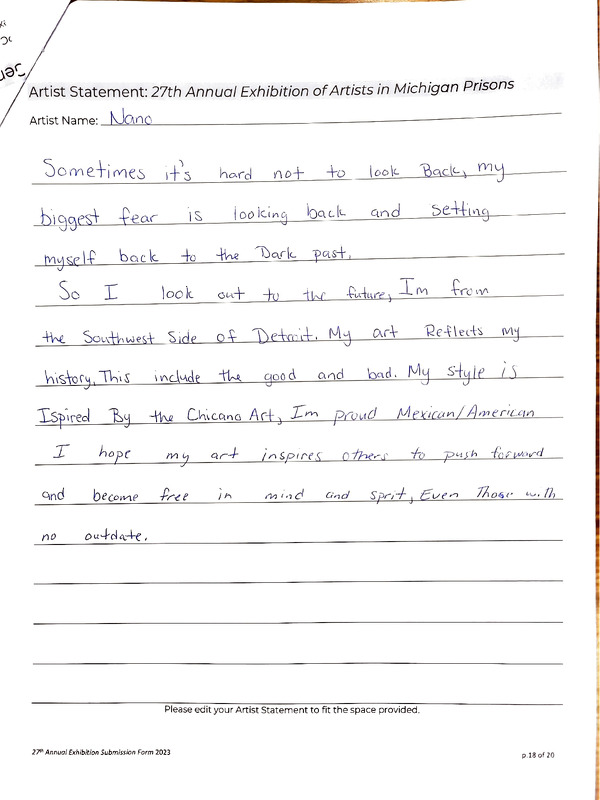 Artist Statement: 27th Annual Exhibition of Artists in Michigan Prisons
Artist Name: Nano
Sometimes it's hard not to look Back, my
biggest fear is looking back and setting
myself back to the Dark past.
So I look out to the future, Im from
the Southwest Side of Detroit. My art Reflects my
history. This include the good and bad. My style is
Ispired By the Chicano Art, Im proud Mexican/American
I hope my art inspires others to push forward
and become free in mind and sprit, Even Those with
no outdate.
Please edit your Artist Statement to fit the space provided.
27th Annual Exhibition Submission Form 2023
p.18 of 20